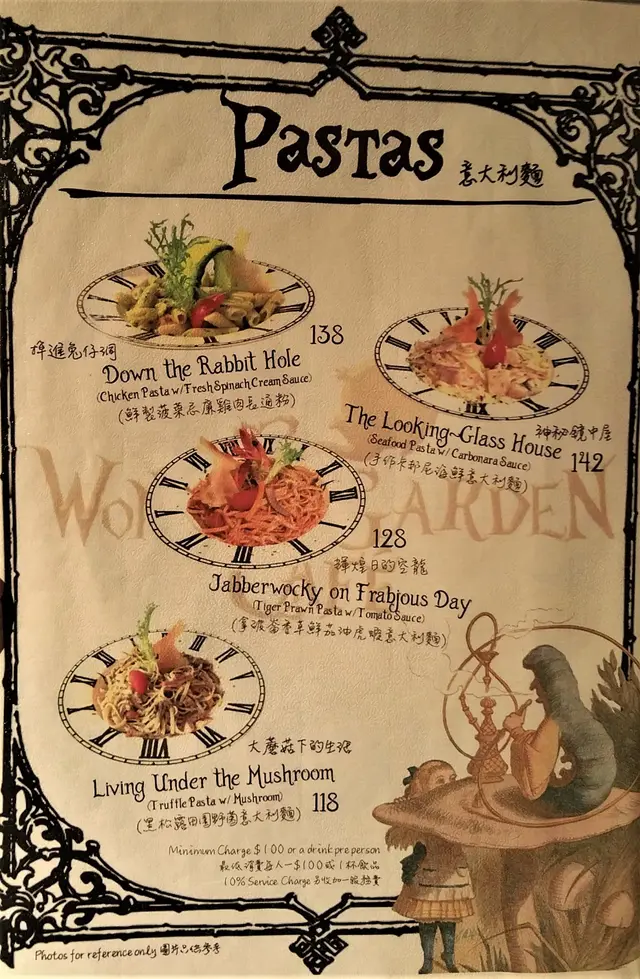 Pastas 意大利麵
138
掉進兔仔洞
Down the Rabbit Hole
(Chicken Pasta w/ Fresh Spinach Cream Sauce)
(鮮製菠菜忌廉雞肉長通粉)
The Looking~Glass House 神秘鏡中屋
(Seafood Pasta w/ Carbonara Sauce) 142
(手作卡邦尼海鮮意大利麵)
WONDER GARDEN
CAFÉ
128
輝煌日的空龍
Jabberwocky on Frabjous Day
(Tiger Prawn Pasta w/ Tomato Sauce)
(拿破崙香草鮮茄油虎蝦意大利麵)
大蘑菇下的生活
Living Under the Mushroom
(Truffle Pasta w/ Mushroom) 118
(黑松露田園野菌意大利麵)
Minimum Charge $100 or a drink pre person
最低消費每人一$100或1杯飲品
10% Service Charge 另收加一服務費
Photos for reference only 圖片只供參考